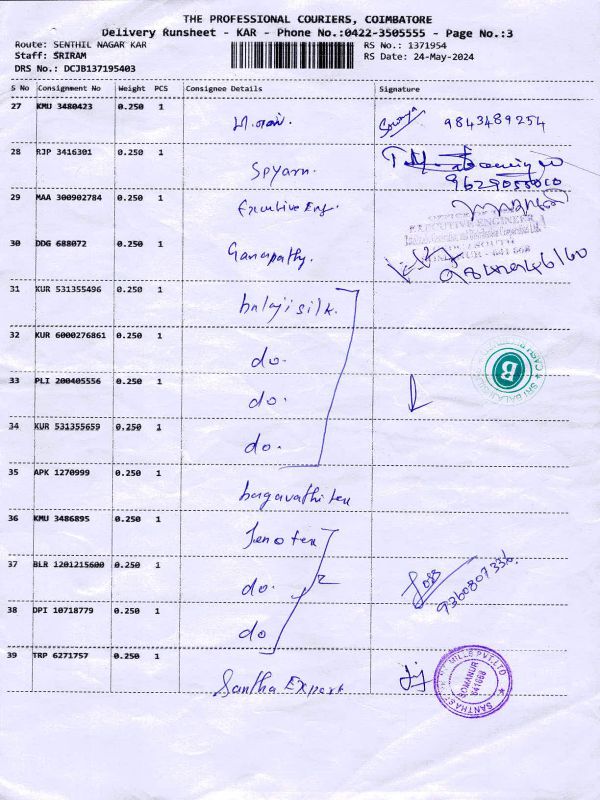 THE PROFESSIONAL COURIERS, COIMBATORE
Delivery Runsheet - KAR - Phone No.:0422-3505555 - Page No.:3
Route: SENTHIL NAGAR KAR
RS No.: 1371954
Staff: SRIRAM
RS Date: 24-May-2024
DRS No.: DCJB137195403
S No Consignment No Weight PCS Consignee Details Signature
27 KMU 3480423 0.250 1
9843489254
28 RJP 3416301 0.250 1
9629055010
29 MAA 300902784 0.250 1
Executive Eng.
EXECUTIVE ENGINEER
30 DDG 688072 0.250 1
Ganapathy.
31 KUR 531355496 0.250 1
balaji silk.
32 KUR 6000276861 0.250 1
do.
33 PLI 200405556 0.250 1
do.
B
34 KUR 531355659 0.250 1
do.
35 APK 1270999 0.250 1
bagavathi tex
36 KMU 3486895 0.250 1
Jeno tex
37 BLR 1201215600 0.250 1
do.
9360807336
38 DPI 10718779 0.250 1
do
39 TRP 6271757 0.250 1
Santha Export
MILLS PVT LTD
SOMANUR
641668